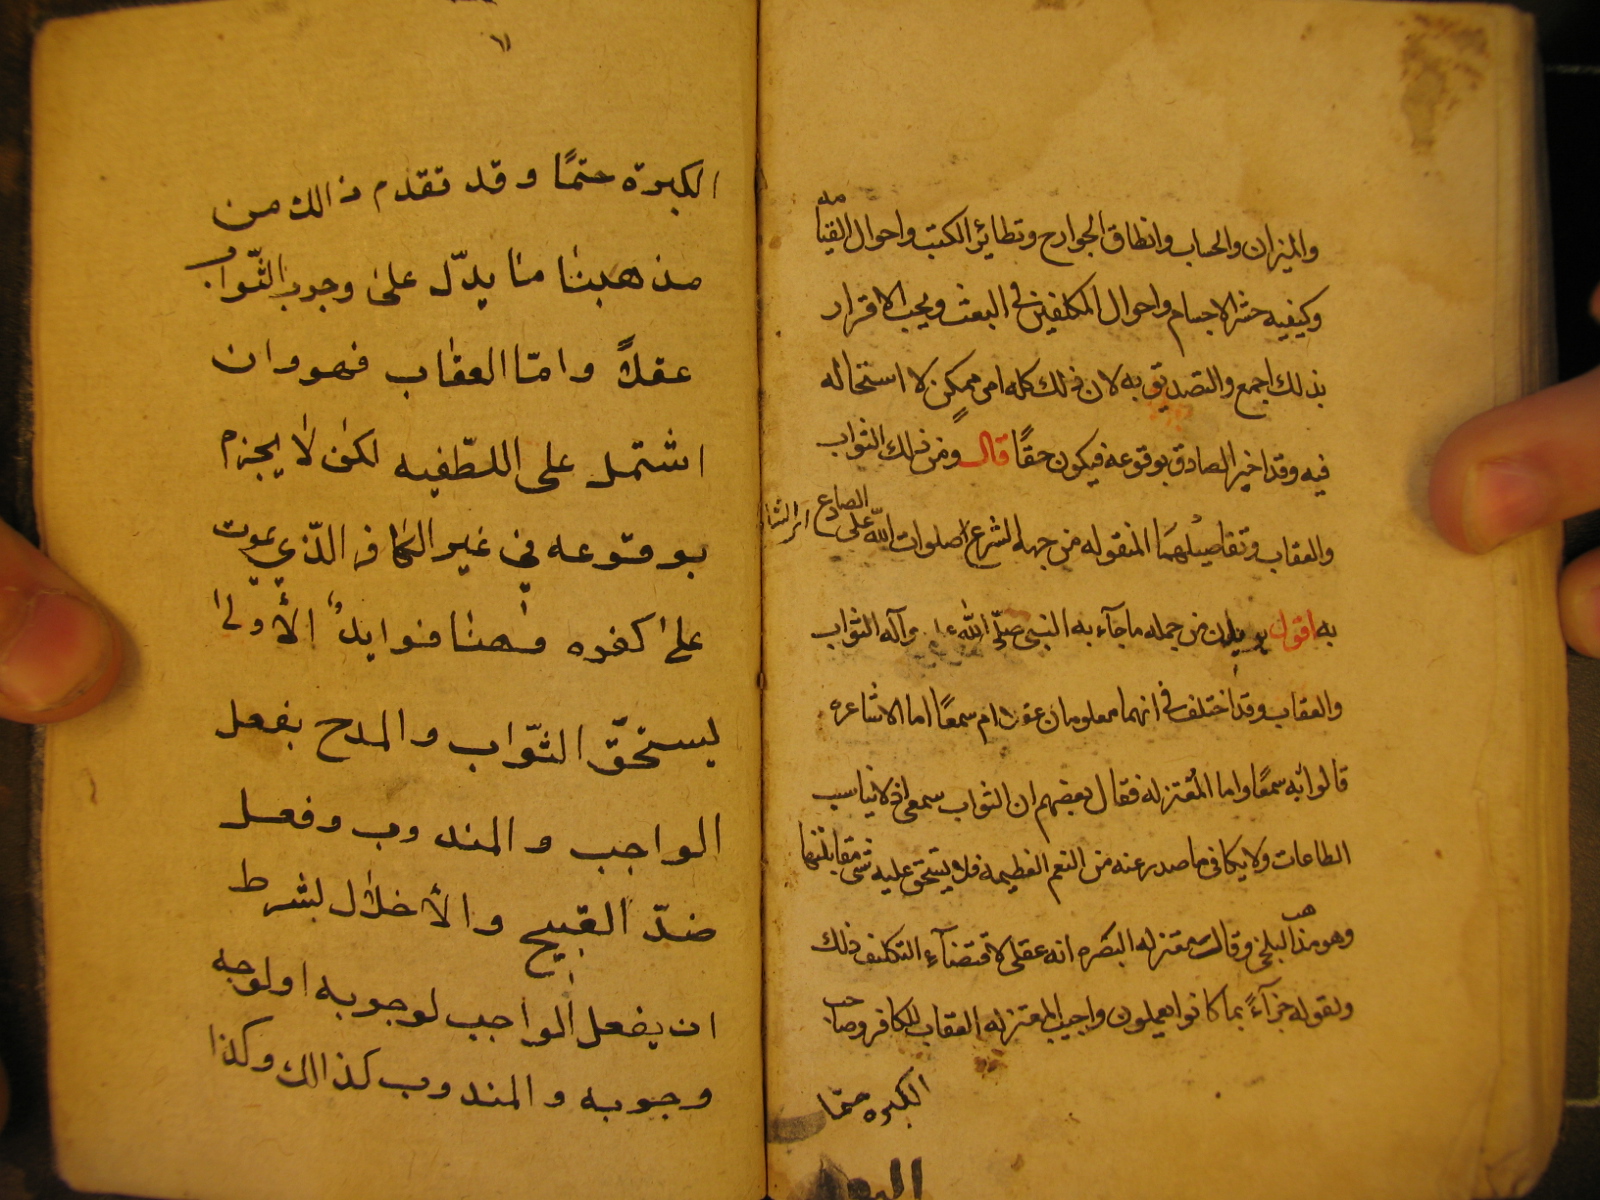 والميزان والحساب وانطاق الجوارح وتطائر الكتب واحوال القيامه
وكيفيه حشر الاجسام واحوال المكلفين في البعث ويجب الاقرار
بذلك اجمع والتصديق به لان ذلك كله امر ممكن لا استحاله
فيه وقد اخبر الصادق بوقوعه فيكون حقًا قال ومن ذلك الثواب
والعقاب وتفاصيلهما المنقوله من جهه الشرع صلوات الله على الصادع
به اقول يريد ان من جمله ما جآء به النبي صلّى الله عليه وآله الثواب
والعقاب وقد اختلف في انهما معلومان عقلا ام سمعًا اما الاشاعره
قالوا انه سمعًا واما المعتزله فقال بعضهم ان الثواب سمعى اذ لا يناسب
الطاعات ولا يكافى ما صدر عنه من النعم العظيمه فلا يستحق عليه شئ مقابلتها
وهو مذهب البلخى وقالت معتزله البصره انه عقلى لاقتضآء التكليف ذلك
ولقوله جزآءً بما كانوا يعملون واوجبت المعتزله العقاب للكافر وصاحب
الكبيره حتمًا
٦١
الكبيرة حتمًا و قد تقدم ذالك من
مذهبنا ما يدّل على وجوب الثّواب
عقلاً و امّا العقاب فهو و ان
اشتمل على اللطّفيه لكن لا يجزم
بوقوعه في غير الكافر الّذي يموت
على كفره و هنا فوايد الأولى
يستحّق الثّواب و المدح بفعل
الواجب و المندوب و فعل
ضدّ القبيح و الأخلال بشرط
ان يفعل الواجب لوجوبه او لوجه
وجوبه و المندوب كذالك و كذا